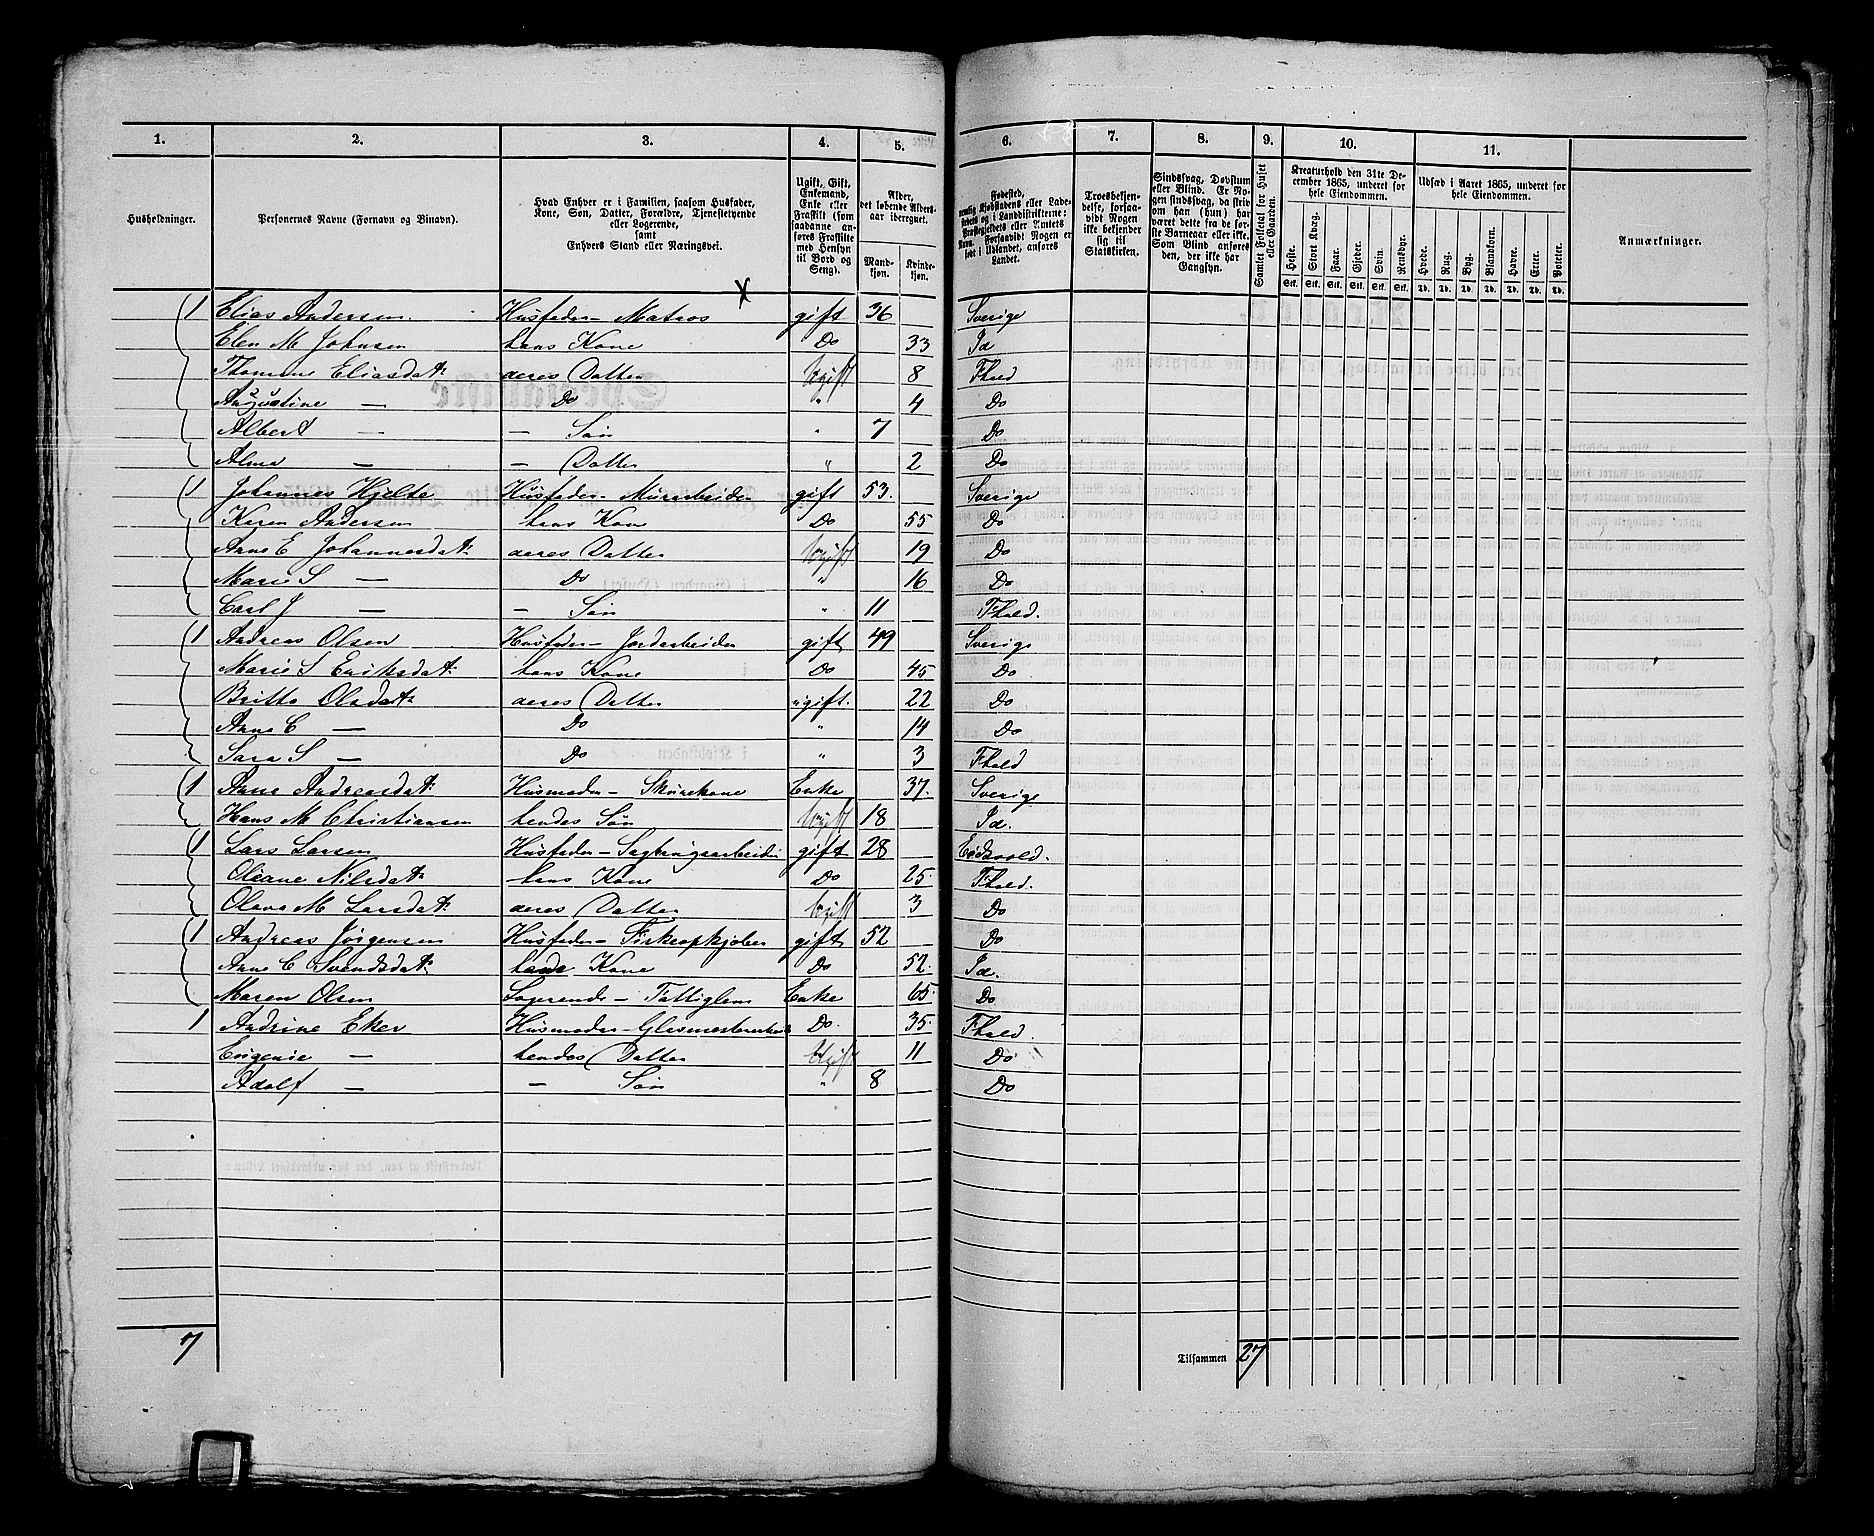 1. 2. 3. 4. 5. 6. 7. 8. 9. 10. 11.
Husholdninger. Personernes Navne (Fornavn og Binavn). Hvad Enhver er i Familien, saasom Husfader, Kone, Søn, Datter, Forældre, Tjenestetyende eller Logerende, samt Enhvers Stand eller Næringsvei. Ugift, Gift, Enkemand, Enke eller Fraskilt (som saadanne anføres Fraskilte med Hensyn til Bord og Seng). Alder, det løbende Alders-aar iberegnet. Mandkjøn. Kvindekjøn. Fødested, nemlig Kjøbstadens eller Ladestedets og i Landdistrikterne: Præstegjeldets eller Amtets Navn. Forsaavidt Nogen er født i Udlandet, anføres Landet. Troesbekjendelse, forsaavidt Nogen ikke bekjender sig til Statskirken. Sindssvag, Døvstum eller Blind. Er Nogen sindssvag, da skrives om han (hun) har været dette fra de første Barneaar eller ikke. Som Blind anføres den, der ikke har Gangsyn. Samlet Folketal for Huset eller Gaarden. Kreaturhold den 31te December 1865, underet for hele Eiendommen. Heste. Stort Kvæg. Faar. Gjeder. Svin. Rensdyr. Udsæd i Aaret 1865, underet for hele Eiendommen. Hvede. Rug. Byg. Blandkorn. Havre. Erter. Poteter. Anmærkninger.
Stk. Stk. Stk. Stk. Stk. Stk. Td. Td. Td. Td. Td. Td. Td.
X
1 Elias Andersen Husfader - Matros gift 36 Sverige
Elen M Johnsen hans Kone Do 33 Id
Thomine Eliasdat: deres Datter Ugift 8 Fhald
Augustine — Do " 4 Do
Albert — — Søn " 7 Do
Alma — — Datter " 2 Do
1 Johannes Hjelte Husfader - Murarbeider gift 53. Sverige
Karen Andersen hans Kone Do 55 Do
Anne E Johannesdat: deres Datter Ugift 19 Do
Marie S — Do " 16 Do
Carl J — — Søn " 11 Fhald.
1 Andreas Olsen Husfader - Jordarbeider gift 49 Sverige
Marie S Eriksdat: hans Kone Do 45 Do
Britta Olsdat: deres Datter ugift. 22 Do
Anne C — Do " 14 Do
Sara S — Do " 3 Fhald
1 Anne Andreasdat: Husmoder - Skurekone Enke 37. Sverige
Hans M Christiansen hendes Søn Ugift 18 Id.
1 Lars Larsen Husfader - Sagbrugsarbeider gift 28 Eidsvold.
Oleane Nilsdat: hans Kone Do 25. Fhald.
Olava M Larsdat: deres Datter Ugift 3 Do
1 Andreas Jørgensen Husfader - Fiskeopkjøber gift 52 Do
Anne C Svendsdat: hans Kone Do 52. Id.
Maren Olsen Logerende - Fattiglem Enke 65. Do
1 Andrine Eker Husmoder - Do. 35. Fhald.
Eugenie — hendes Datter Ugift 11 Do
Adolf — — Søn " 8 Do
7 Tilsammen 27